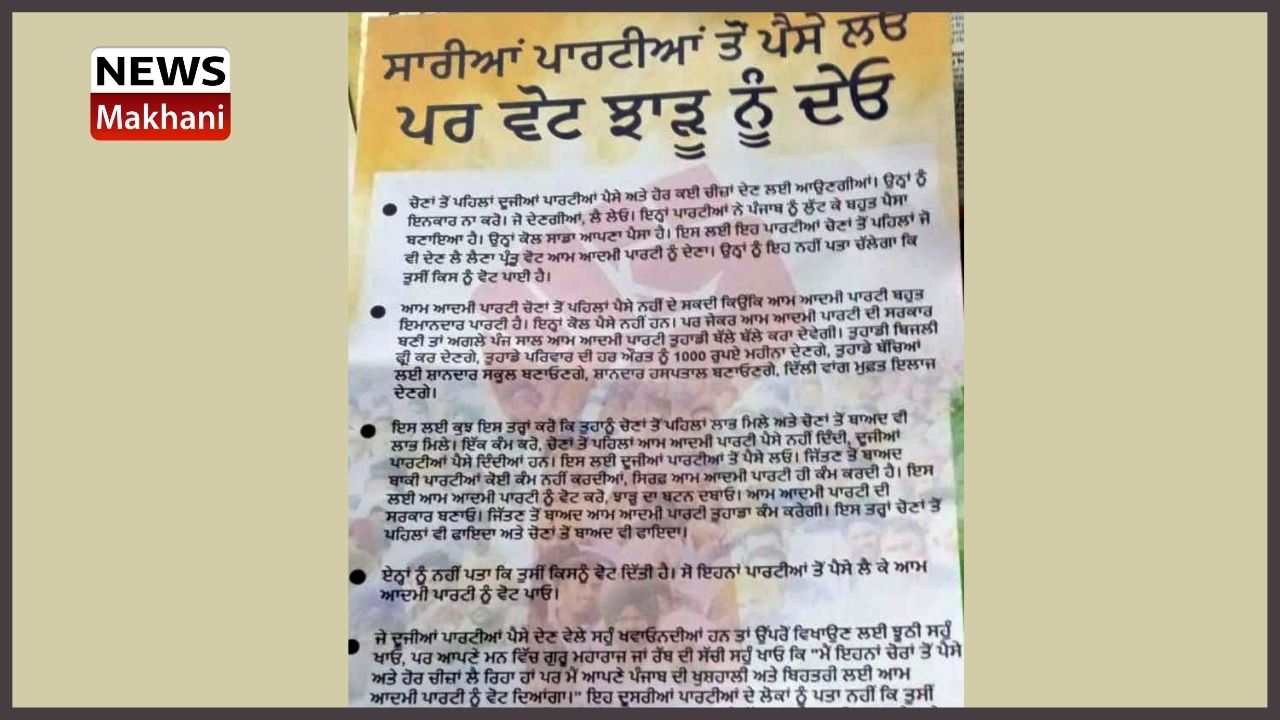 NEWS
Makhani
ਸਾਰੀਆਂ ਪਾਰਟੀਆਂ ਤੋਂ ਪੈਸੇ ਲਓ
ਪਰ ਵੋਟ ਝਾੜੂ ਨੂੰ ਦੇਓ
● ਚੋਣਾਂ ਤੋਂ ਪਹਿਲਾਂ ਦੂਜੀਆਂ ਪਾਰਟੀਆਂ ਪੈਸੇ ਅਤੇ ਹੋਰ ਕਈ ਚੀਜ਼ਾਂ ਦੇਣ ਲਈ ਆਉਣਗੀਆਂ। ਉਨ੍ਹਾਂ ਨੂੰ
ਇਨਕਾਰ ਨਾ ਕਰੋ। ਜੋ ਦੇਣਗੀਆਂ, ਲੈ ਲੇਓ। ਇਨ੍ਹਾਂ ਪਾਰਟੀਆਂ ਨੇ ਪੰਜਾਬ ਨੂੰ ਲੁੱਟ ਕੇ ਬਹੁਤ ਪੈਸਾ
ਬਣਾਇਆ ਹੈ। ਉਨ੍ਹਾਂ ਕੋਲ ਸਾਡਾ ਆਪਣਾ ਪੈਸਾ ਹੈ। ਇਸ ਲਈ ਇਹ ਪਾਰਟੀਆਂ ਚੋਣਾਂ ਤੋਂ ਪਹਿਲਾਂ ਜੋ
ਵੀ ਦੇਣ ਲੈ ਲੈਣਾ ਪ੍ਰੰਤੂ ਵੋਟ ਆਮ ਆਦਮੀ ਪਾਰਟੀ ਨੂੰ ਦੇਣਾ। ਉਨ੍ਹਾਂ ਨੂੰ ਇਹ ਨਹੀਂ ਪਤਾ ਚੱਲੇਗਾ ਕਿ
ਤੁਸੀਂ ਕਿਸ ਨੂੰ ਵੋਟ ਪਾਈ ਹੈ।
● ਆਮ ਆਦਮੀ ਪਾਰਟੀ ਚੋਣਾਂ ਤੋਂ ਪਹਿਲਾਂ ਪੈਸੇ ਨਹੀਂ ਦੇ ਸਕਦੀ ਕਿਉਂਕਿ ਆਮ ਆਦਮੀ ਪਾਰਟੀ ਬਹੁਤ
ਇਮਾਨਦਾਰ ਪਾਰਟੀ ਹੈ। ਇਨ੍ਹਾਂ ਕੋਲ ਪੈਸੇ ਨਹੀਂ ਹਨ। ਪਰ ਜੇਕਰ ਆਮ ਆਦਮੀ ਪਾਰਟੀ ਦੀ ਸਰਕਾਰ
ਬਣੀ ਤਾਂ ਅਗਲੇ ਪੰਜ ਸਾਲ ਆਮ ਆਦਮੀ ਪਾਰਟੀ ਤੁਹਾਡੀ ਬੱਲੇ ਬੱਲੇ ਕਰਾ ਦੇਵੇਗੀ। ਤੁਹਾਡੀ ਬਿਜਲੀ
ਫ੍ਰੀ ਕਰ ਦੇਣਗੇ, ਤੁਹਾਡੇ ਪਰਿਵਾਰ ਦੀ ਹਰ ਔਰਤ ਨੂੰ 1000 ਰੁਪਏ ਮਹੀਨਾ ਦੇਣਗੇ, ਤੁਹਾਡੇ ਬੱਚਿਆਂ
ਲਈ ਸ਼ਾਨਦਾਰ ਸਕੂਲ ਬਣਾਓਣਗੇ, ਸ਼ਾਨਦਾਰ ਹਸਪਤਾਲ ਬਣਾਓਣਗੇ, ਦਿੱਲੀ ਵਾਂਗ ਮੁਫ਼ਤ ਇਲਾਜ
ਦੇਣਗੇ।
● ਇਸ ਲਈ ਕੁਝ ਇਸ ਤਰ੍ਹਾਂ ਕਰੋ ਕਿ ਤੁਹਾਨੂੰ ਚੋਣਾਂ ਤੋਂ ਪਹਿਲਾਂ ਲਾਭ ਮਿਲੇ ਅਤੇ ਚੋਣਾਂ ਤੋਂ ਬਾਅਦ ਵੀ
ਲਾਭ ਮਿਲੇ। ਇੱਕ ਕੰਮ ਕਰੋ, ਚੋਣਾਂ ਤੋਂ ਪਹਿਲਾਂ ਆਮ ਆਦਮੀ ਪਾਰਟੀ ਪੈਸੇ ਨਹੀਂ ਦਿੰਦੀ, ਦੂਜੀਆਂ
ਪਾਰਟੀਆਂ ਪੈਸੇ ਦਿੰਦੀਆਂ ਹਨ। ਇਸ ਲਈ ਦੂਜੀਆਂ ਪਾਰਟੀਆਂ ਤੋਂ ਪੈਸੇ ਲਓ। ਜਿੱਤਣ ਤੋਂ ਬਾਅਦ
ਬਾਕੀ ਪਾਰਟੀਆਂ ਕੋਈ ਕੰਮ ਨਹੀਂ ਕਰਦੀਆਂ, ਸਿਰਫ਼ ਆਮ ਆਦਮੀ ਪਾਰਟੀ ਹੀ ਕੰਮ ਕਰਦੀ ਹੈ। ਇਸ
ਲਈ ਆਮ ਆਦਮੀ ਪਾਰਟੀ ਨੂੰ ਵੋਟ ਕਰੋ, ਝਾੜੂ ਦਾ ਬਟਨ ਦਬਾਓ। ਆਮ ਆਦਮੀ ਪਾਰਟੀ ਦੀ
ਸਰਕਾਰ ਬਣਾਓ। ਜਿੱਤਣ ਤੋਂ ਬਾਅਦ ਆਮ ਆਦਮੀ ਪਾਰਟੀ ਤੁਹਾਡਾ ਕੰਮ ਕਰੇਗੀ। ਇਸ ਤਰ੍ਹਾਂ ਚੋਣਾਂ ਤੋਂ
ਪਹਿਲਾਂ ਵੀ ਫਾਇਦਾ ਅਤੇ ਚੋਣਾਂ ਤੋਂ ਬਾਅਦ ਵੀ ਫਾਇਦਾ।
● ਏਨ੍ਹਾਂ ਨੂੰ ਨਹੀਂ ਪਤਾ ਕਿ ਤੁਸੀਂ ਕਿਸਨੂੰ ਵੋਟ ਦਿੱਤੀ ਹੈ। ਸੋ ਇਹਨਾਂ ਪਾਰਟੀਆਂ ਤੋਂ ਪੈਸੇ ਲੈ ਕੇ ਆਮ
ਆਦਮੀ ਪਾਰਟੀ ਨੂੰ ਵੋਟ ਪਾਓ।
● ਜੇ ਦੂਜੀਆਂ ਪਾਰਟੀਆਂ ਪੈਸੇ ਦੇਣ ਵੇਲੇ ਸਹੁੰ ਖਵਾਓਨਦੀਆਂ ਹਨ ਤਾਂ ਉੱਪਰੋਂ ਵਿਖਾਉਣ ਲਈ ਝੂਠੀ ਸਹੁੰ
ਖਾਓ, ਪਰ ਆਪਣੇ ਮਨ ਵਿੱਚ ਗੁਰੂ ਮਹਾਰਾਜ ਜਾਂ ਰੱਬ ਦੀ ਸੱਚੀ ਸਹੁੰ ਖਾਓ ਕਿ "ਮੈਂ ਇਹਨਾਂ ਚੋਰਾਂ ਤੋਂ ਪੈਸੇ
ਅਤੇ ਹੋਰ ਚੀਜ਼ਾਂ ਲੈ ਰਿਹਾ ਹਾਂ ਪਰ ਮੈਂ ਆਪਣੇ ਪੰਜਾਬ ਦੀ ਖੁਸ਼ਹਾਲੀ ਅਤੇ ਬਿਹਤਰੀ ਲਈ ਆਮ
ਆਦਮੀ ਪਾਰਟੀ ਨੂੰ ਵੋਟ ਦਿਆਂਗਾ।" ਇਹ ਦੂਸਰੀਆਂ ਪਾਰਟੀਆਂ ਦੇ ਲੋਕਾਂ ਨੂੰ ਪਤਾ ਨਹੀਂ ਕਿ ਤੁਸੀਂ